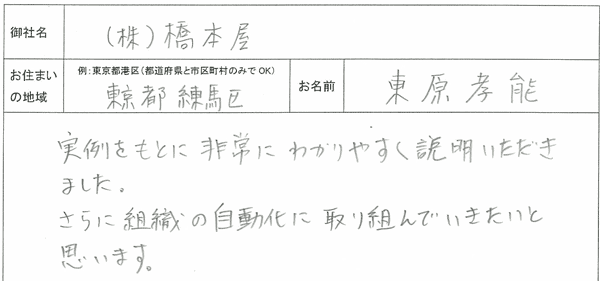 御社名 (株)橋本屋
お住まいの地域 例:東京都港区(都道府県と市区町村のみでOK)
東京都練馬区 お名前 東原孝能
実例をもとに非常にわかりやすく説明いただき
ました。
さらに組織の自動化に取り組んでいきたいと
思います。